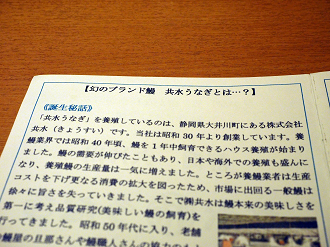 【幻のブランド鰻　共水うなぎとは…？】
《誕生秘話》
「共水うなぎ」を養殖しているのは、静岡県大井川町にある株式会社
共水（きょうすい）です。当社は昭和30年より創業しています。養
鰻業界では昭和40年頃、鰻を1年中飼育できるハウス養殖が始まり
ました。鰻の需要が伸びたこともあり、日本や海外での養殖も盛んに
なり、養殖鰻の生産量は一気に増えました。ところが養鰻業者は生産
コストを下げ更なる消費の拡大を図ったため、市場に出回る一般鰻は
徐々に旨さを失っていきました。そこで㈱共水は鰻本来の美味しさを
第一に考え品質研究(美味しい鰻の飼育)を
行ってきました。昭和50年代に入り、老舗
鰻屋の旦那さんや鰻職人さんの協力のも